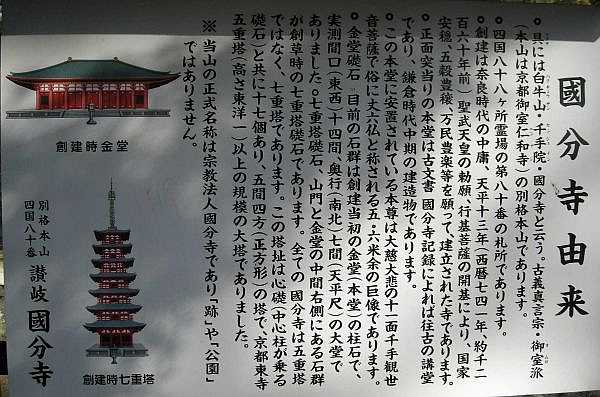 國分寺由来
●具には白牛山・千手院・國分寺と云う。古義真言宗・御室派
(本山は京都御室仁和寺)の別格本山であります。
●四国八十八ヶ所霊場の第八十番の札所であります。
●創建は奈良時代の中庸、天平十三年(西暦七四一年・約千二
百六十年前)聖武天皇の勅願、行基菩薩の開基により、国家
安穏、五穀豊穣、万民豊楽等を願って、建立された寺であります。
●正面突当りの本堂は古文書 國分寺記録によれば往古の講堂
であり、鎌倉時代中期の建造物であります。
●この本堂に安置されている本尊は大慈大悲の十一面千手観世
音菩薩で俗に丈六仏と称される五・六米余の巨像であります。
●金堂礎石 目前の石群は創建当初の金堂(本堂)の柱石で、
実測間口(東西)十四間、奥行(南北)七間(天平尺)の大堂で
ありました。●七重塔礎石、山門と金堂の中間右側にある石群
が創草時の七重塔礎石であります。全ての 國分寺は五重塔
ではなく、七重塔であります。この塔址は心礎(中心柱が乗る
礎石)と共に十七個あり、五間四方(正方形)の塔で、京都東寺
五重塔(高さ東洋一)以上の規模の大塔でありました。
※当山の正式名称は宗教法人國分寺であり「跡」や「公園」
ではありません。
創建時金堂
別格本山
四国八十番
讃岐 國分寺
創建時七重塔